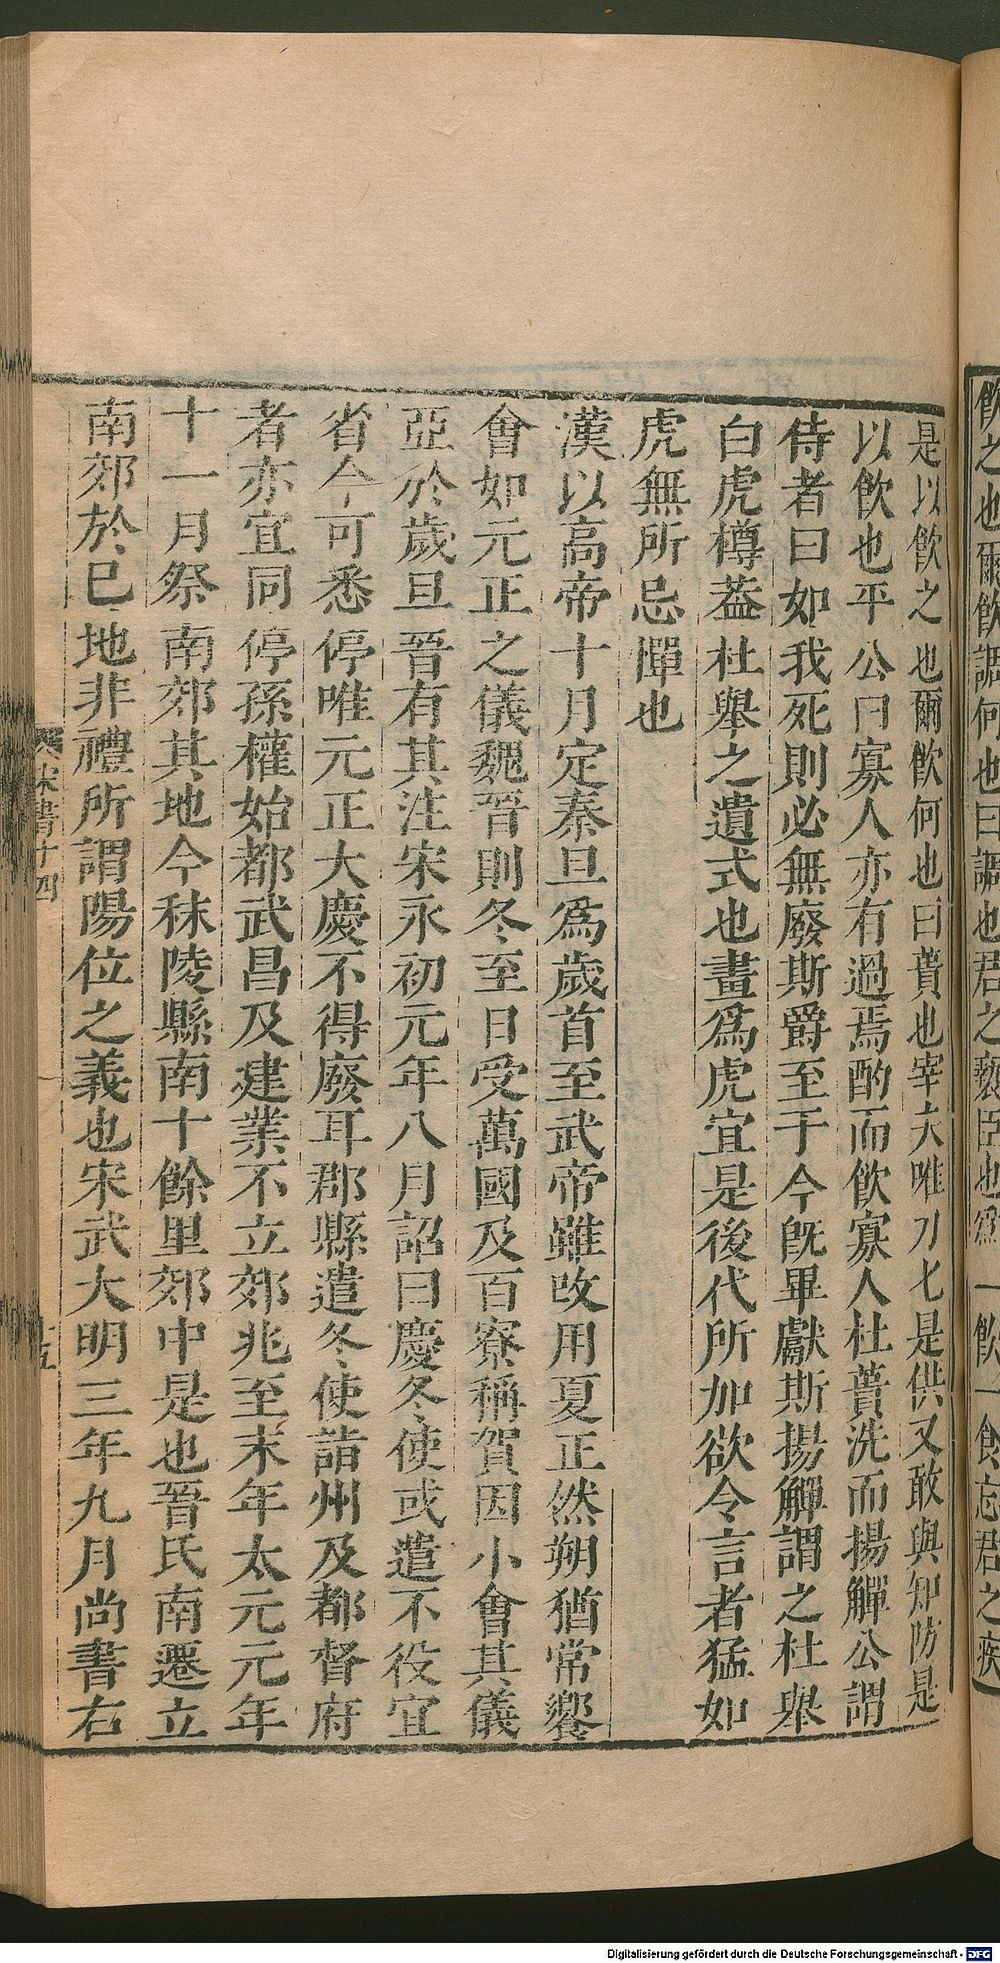 飲之也爾飲調何也曰調也君之褻臣也爲一飲一食忘君之疾
是以飲之也爾飲何也曰蕢也宰夫唯刀匕是供又敢與知防是
以飲也平公曰寡人亦有過焉酌而飲寡人杜蕢洗而揚觶公謂
侍者曰如我死則必無廢斯爵至于今旣畢獻斯揚觶謂之杜舉
白虎樽葢杜舉之遺式也畫爲虎宜是後代所加欲令言者猛如
虎無所忌憚也
漢以高帝十月定秦旦爲歲首至武帝雖改用夏正然朔猶常饗
會如元正之儀魏晉則冬至日受萬國及百寮稱賀因小會其儀
亞於歲旦晉有其注宋永初元年八月詔曰慶冬使或遣不役宜
省今可悉停唯元正大慶不得廢耳郡縣遣冬使詣州及都督府
者亦宜同停孫權始都武昌及建業不立郊兆至末年太元元年
十一月祭南郊其地今秣陵縣南十餘里郊中是也晉氏南遷立
南郊於巳地非禮所謂陽位之義也宋武大明三年九月尚書右
宋書十四
十五
Digitalisierung gefördert durch die Deutsche Forschungsgemeinschaft - DFG